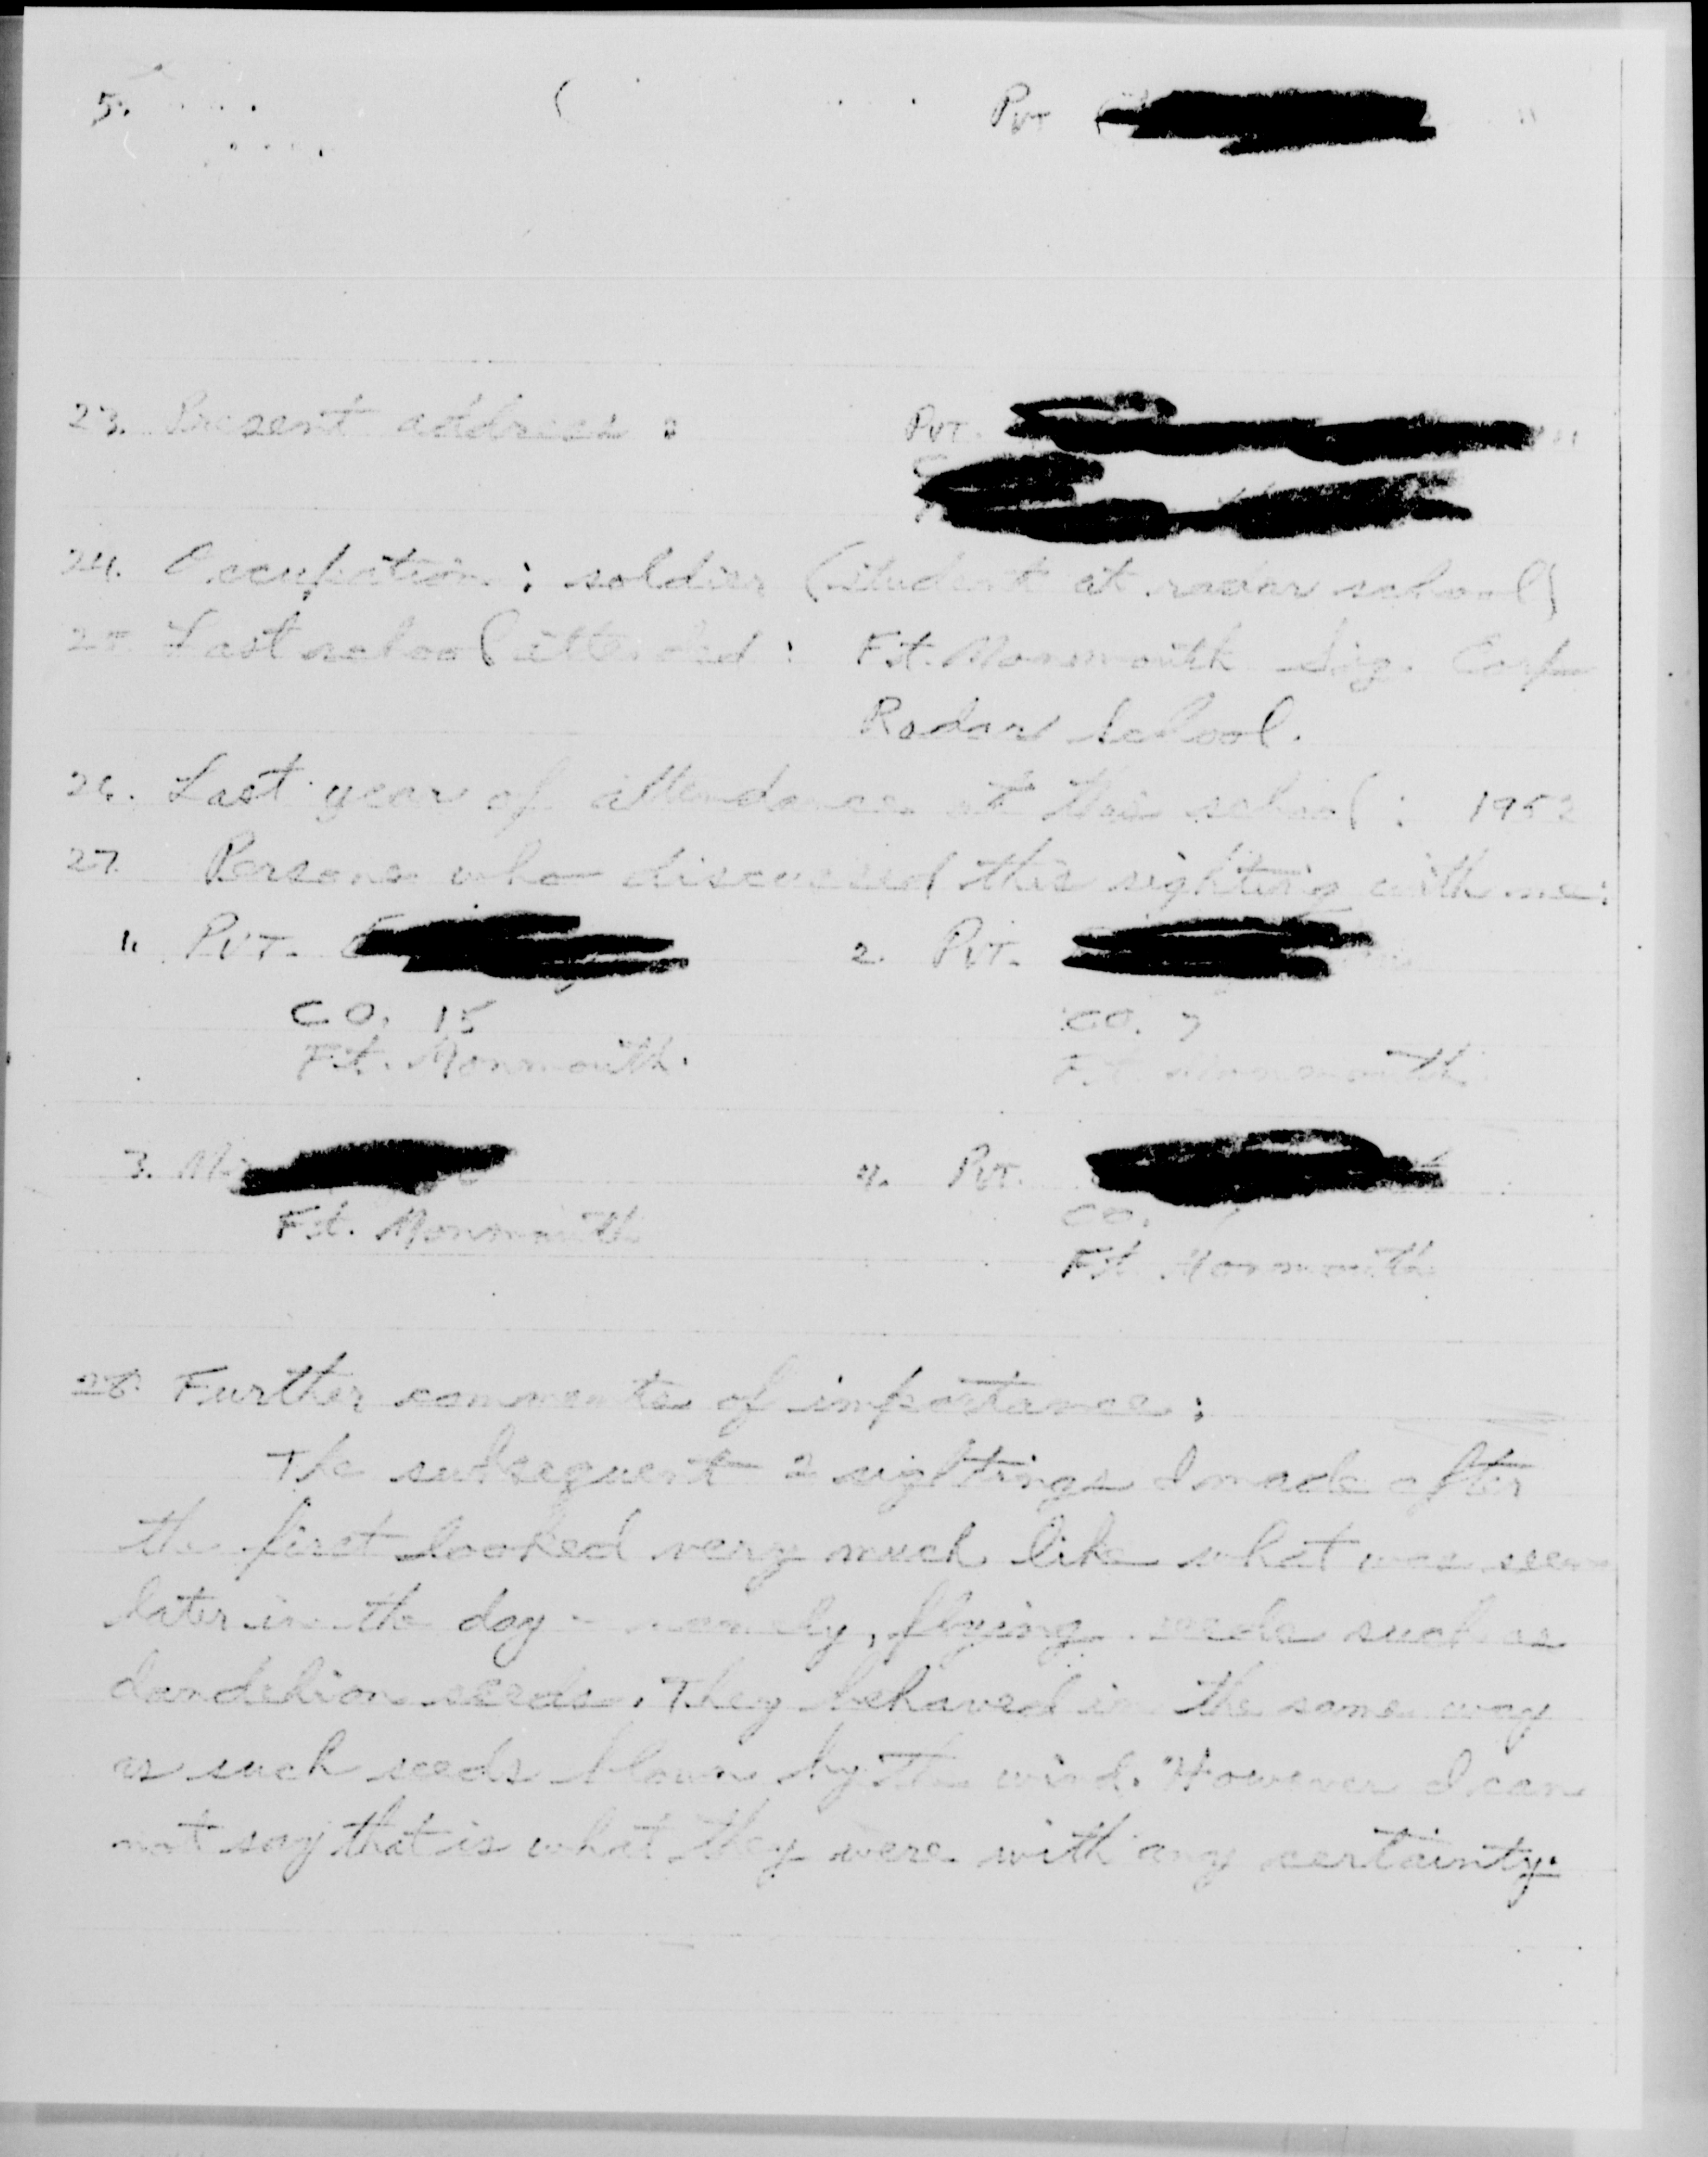 5. Pvt
23. Present address : Pvt.
24. Occupation : soldier (student at radar school)
25. Last school attended : Ft. Monmouth Sig. Corp
Radar School.
26. Last year of attendance at this school : 1952
27. Persons who discussed this sighting with me:
1. Pvt. 2. Pvt.
Co. 15 Co. 7
Ft. Monmouth. Ft. Monmouth
3. 4. Pvt.
Ft. Monmouth Co.
Ft. Monmouth
28. Further comments of importance :
The subsequent 2 sightings I made after
the first looked very much like what was seen
later in the day - namely, flying seeds such as
dandelion seeds. They behaved in the same way
as such seeds blown by the wind. However I can
not say that is what they were with any certainty.